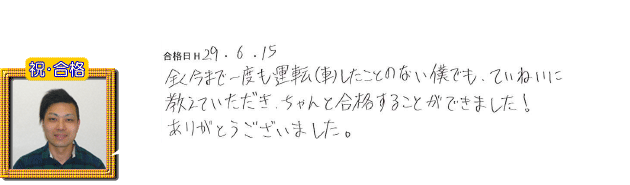 祝・合格
合格日H 29.6.15
全く今まで一度も運転(車)したことのない僕でも、ていねいに
教えていただき、ちゃんと合格することができました!
ありがとうございました。